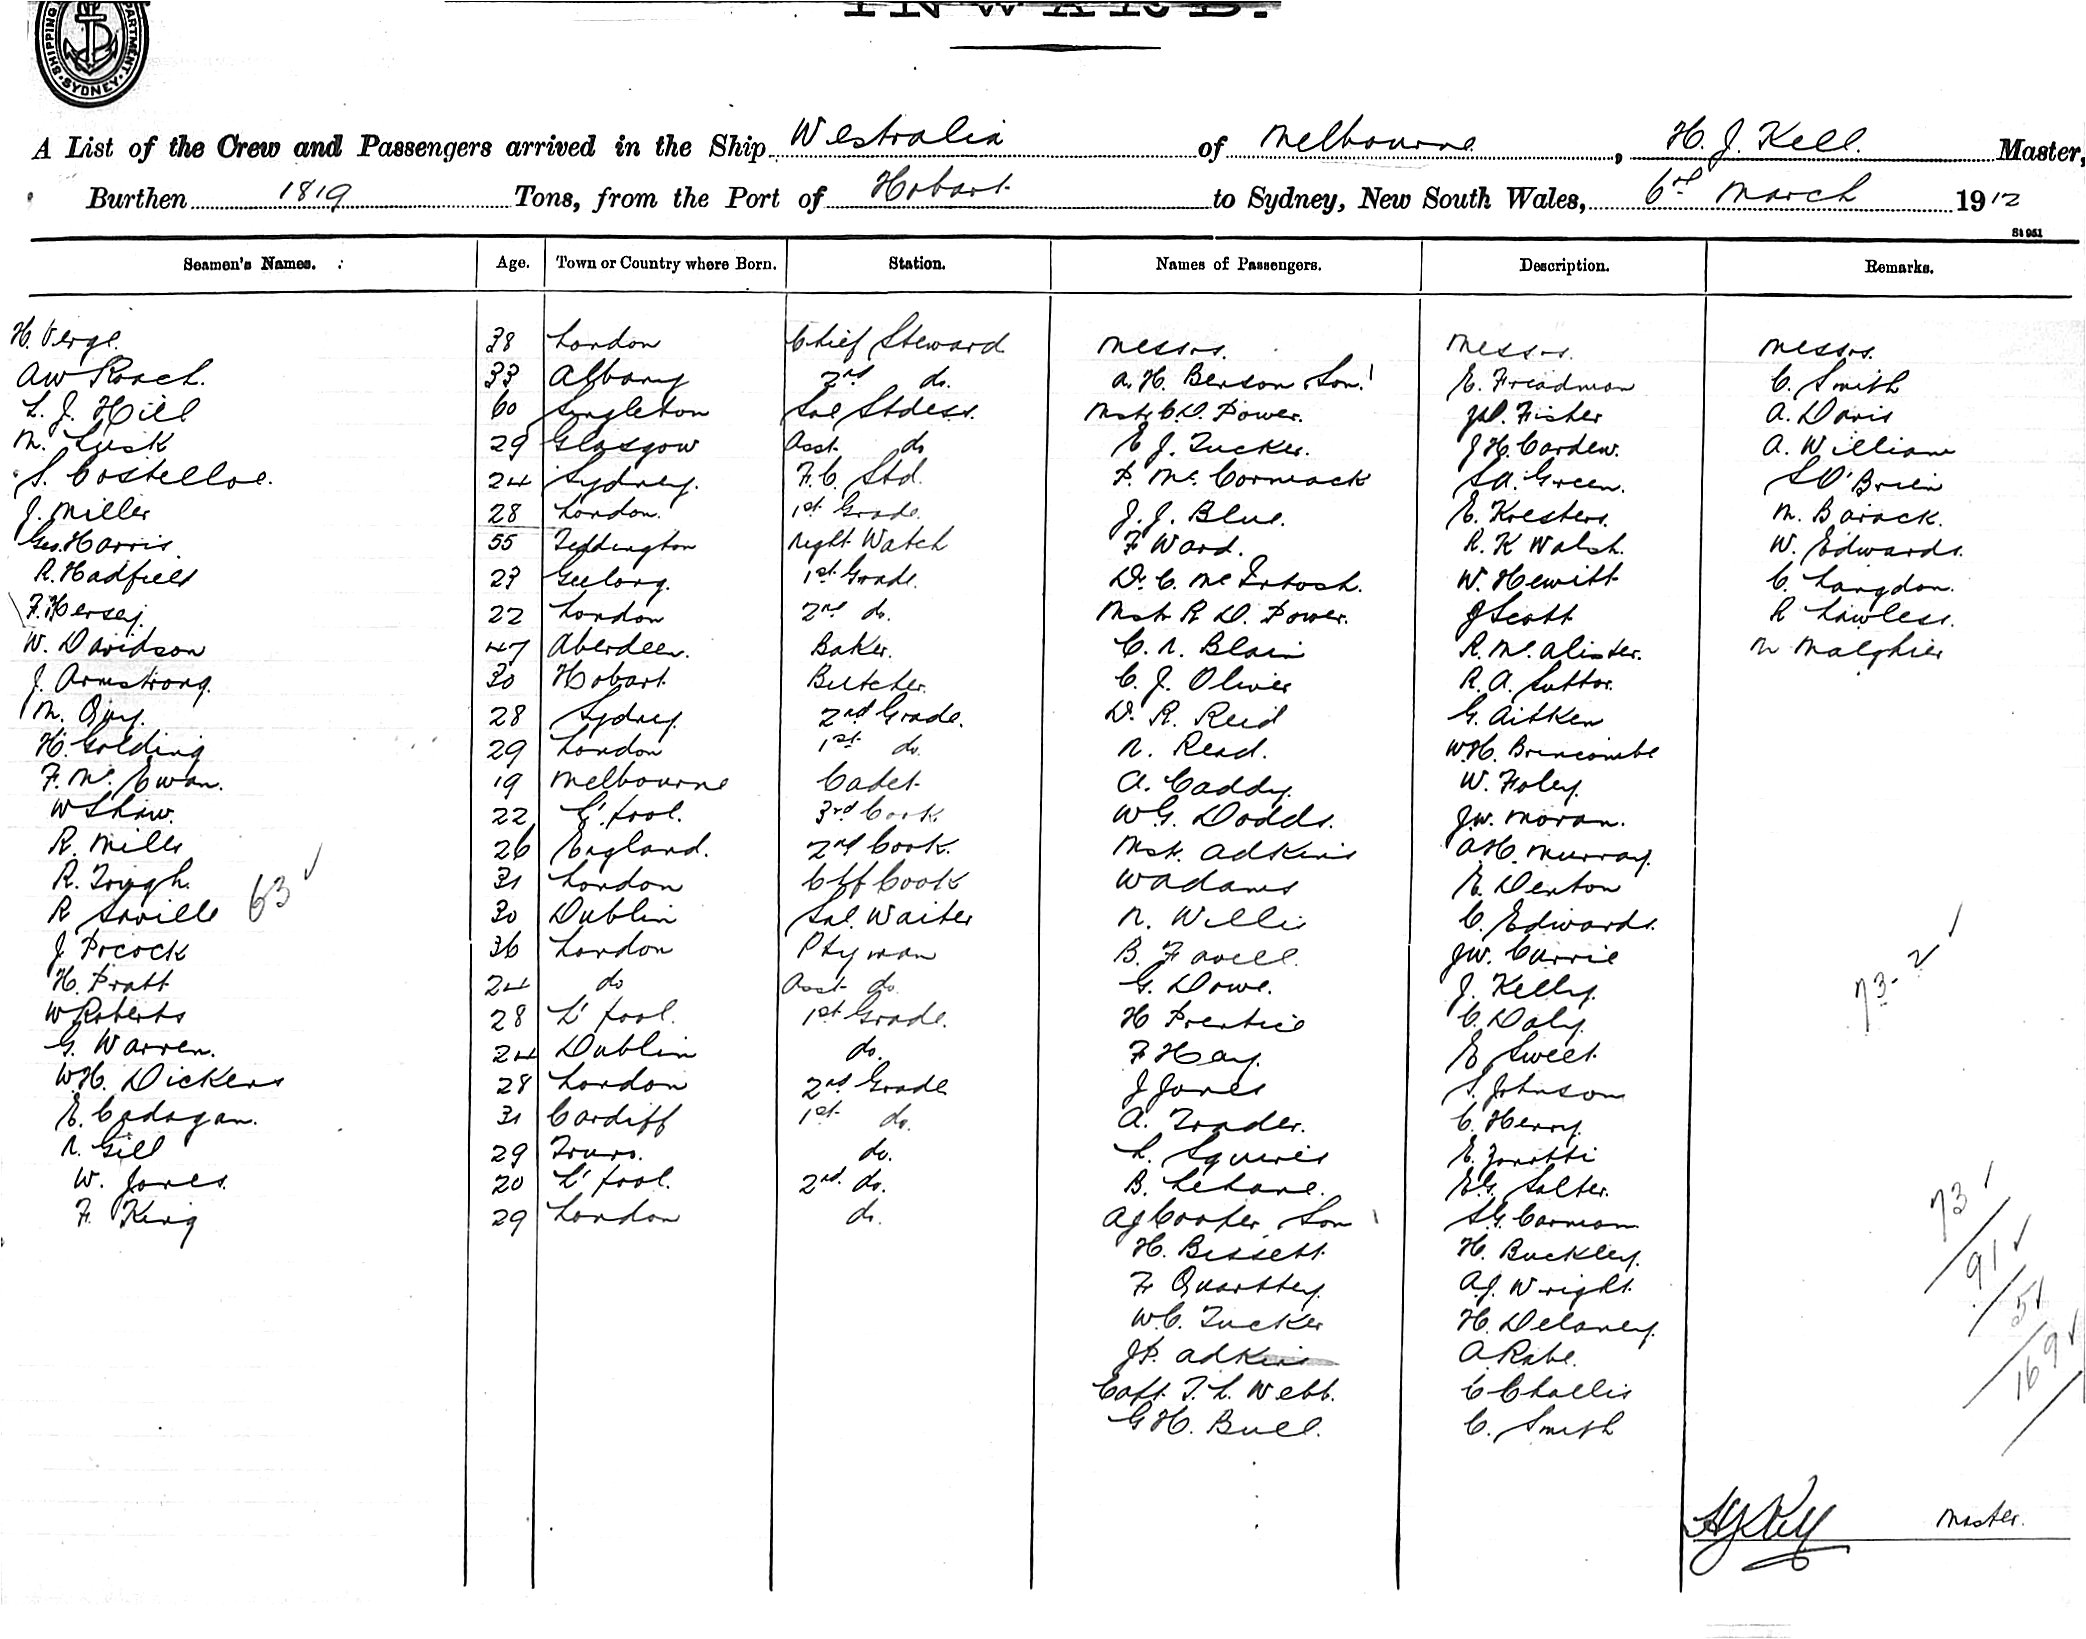 INWARD.
SHIPPING DEPARTMENT. SYDNEY
A List of the Crew and Passengers arrived in the Ship Westralia of Melbourne, H. J. Kell. Master,
Burthen 1819 Tons, from the Port of Hobart to Sydney, New South Wales, 6th March 1912
St 951
Seamen's Names. Age. Town or Country where Born. Station. Names of Passengers. Description. Remarks.
H. Verge. 38 London Chief Steward Messrs. Messrs. Messrs.
AW Roach. 33 Albany 2nd do. A. H. Benson Son 1 E. Freadman C. Smith
L. J. Hill 60 Singleton Sal Stdess. Mstr C. D. Power. Fisher A. Davis
M. Lusk 29 Glasgow Asst do E J. Tucker. J H. Cardew. A. William
S. Costelloe. 24 Sydney. F. C. Std. P. McCormack S A. Green. S O'Brien
J. Miller 28 London. 1st Grade. J. J. Blue. E. Kresters. M. Barack.
Geo. Harris. 55 Teddington Night Watch F Ward. R. K Walsh. W. Edwards.
R. Hadfield 23 Geelong. 1st Grade. D. C. McIntosh. W. Hewitt C. Langdon.
F. Hersey. 22 London 2nd do. Mstr R D. Power. J Scott R Lawless.
W. Davidson 47 Aberdeen. Baker. C. N. Blain R. McAlister. N Malghier
J. Armstrong. 30 Hobart Butcher. C. J. Oliver R. A. Suttor.
M. Quy. 28 Sydney. 2nd Grade. D. R. Reid G. Aitken
H. Golding 29 London 1st do. N. Read. W.H. Brincombe
F. McEwan. 19 Melbourne Cadet A. Caddy. W. Foley.
W Shaw. 22 L'pool. 3rd Cook W G. Dodds. J.W. Moran.
R. Mills 26 England. 2nd Cook. Mstr. Adkins A.H. Murray.
R. Tough. 31 London Chf Cook W Adams E. Denton
R Saville 63 30 Dublin Sal. Waiter N. Willis C. Edwards.
J. Pocock 36 London Ptyman B. Favell. J.W. Currie
H. Pratt 24 do Asst do. G. Dowe. J. Kelly. 73-2
W Roberts 28 L'pool. 1st Grade. H Prentice C. Daly.
G. Warren. 24 Dublin do. F Hay. E Sweet.
W.H. Dickens 28 London 2nd Grade J Jones S. Johnson
E. Cadogan. 31 Cardiff 1st do. A. Trader. C. Henry.
N. Gill 29 Truro. do. L. Squires E. Zanetti
W. Jones. 20 L'pool. 2nd do. B. Lehane. E.G. Salter.
F. King 29 London do. A J Cooper Son 1 S.G. Carman 73
H. Bissett. H. Buckley. 91
F Quarttey. A.J. Wright. 5
W.C. Tucker H. Delaney. 169
J.P. Adkins A Rabe.
Capt. T. L. Webb. C Challis
G H. Bull. C. Smith
H J Kell Master.